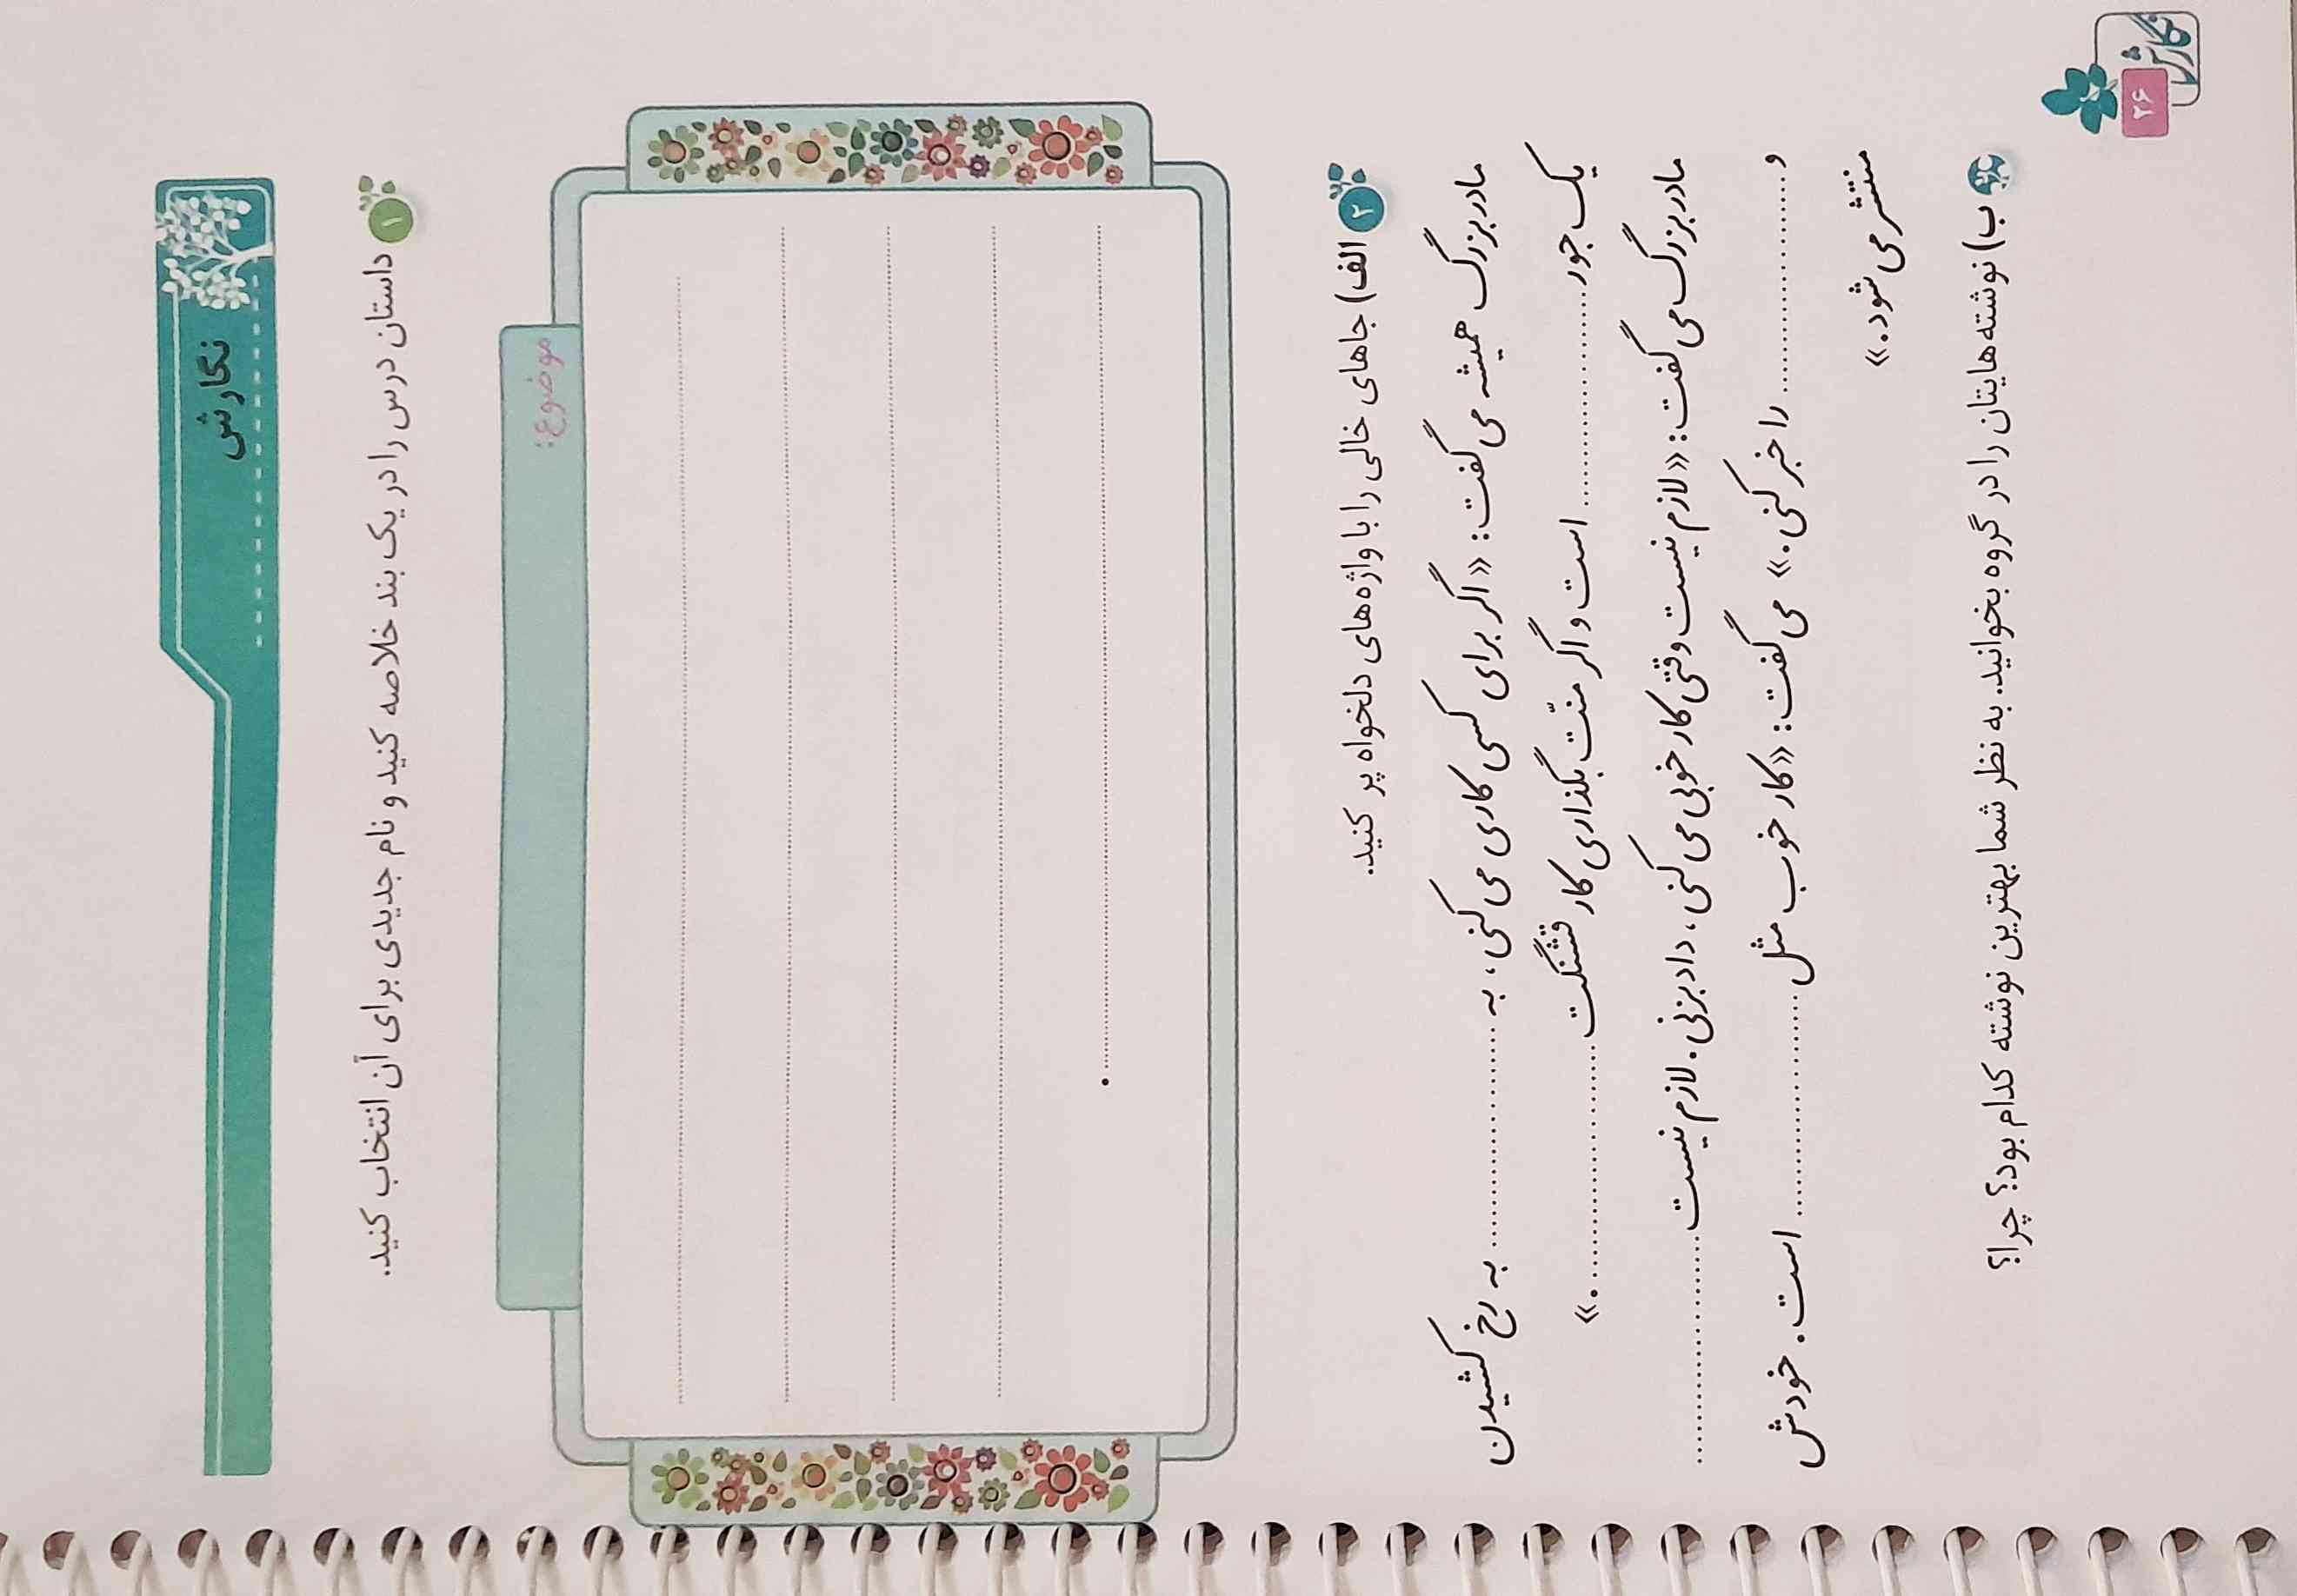 نگارش
۱ داستان درس را در یک بند خلاصه کنید و نام جدیدی برای آن انتخاب کنید.
موضوع:
۲ الف) جاهای خالی را با واژه‌های دلخواه پر کنید.
مادربزرگ همیشه می‌گفت: «اگر برای کسی کاری می‌کنی، به .................... به رخ کشیدن
یک جور .................... است و اگر منّت بگذاری کار قشنگت .................... .»
مادربزرگ می‌گفت: «لازم نیست وقتی کار خوبی می‌کنی، داد بزنی. لازم نیست ....................
و .................... را خبر کنی.» می‌گفت: «کار خوب مثل .................... است. خودش
منتشر می‌شود.»
ب) نوشته‌هایتان را در گروه بخوانید. به نظر شما بهترین نوشته کدام بود؟ چرا؟
نگارش
۲۶